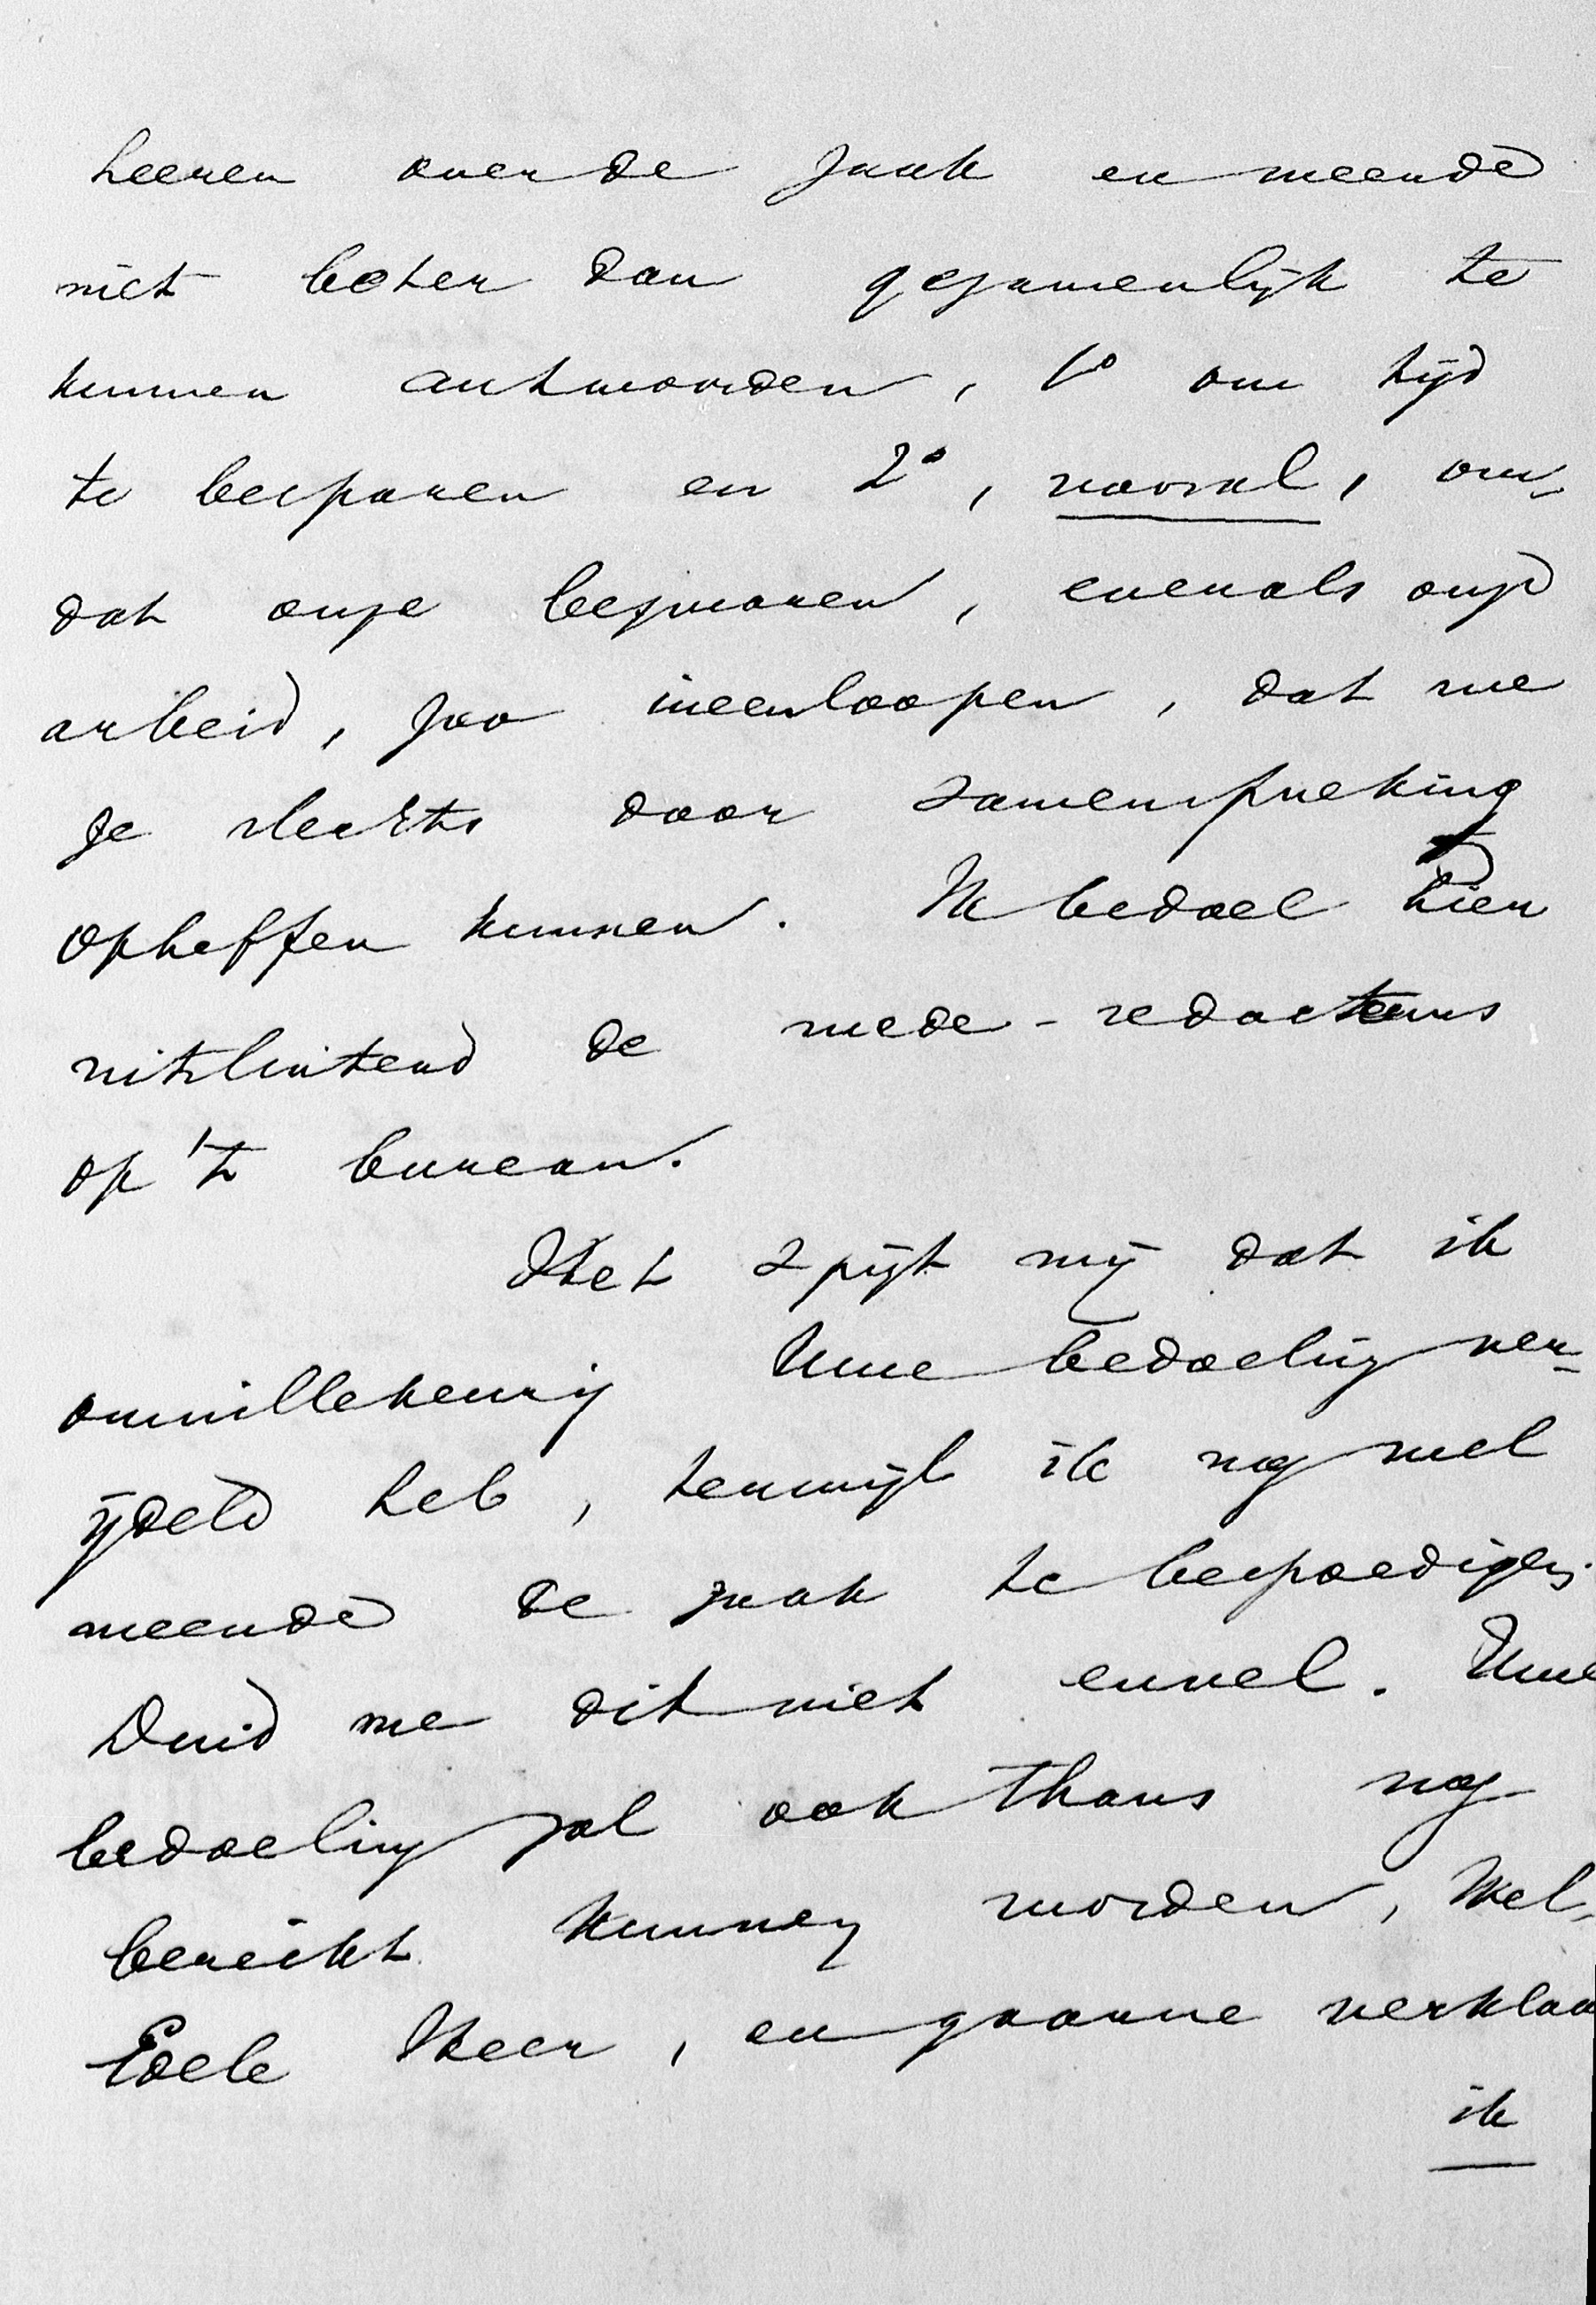 heeren over de zaak en meende
niet beter dan gezamenlijk te
kunnen antwoorden, 1º om tijd
te besparen en 2º, vooral, om-
dat onze bezwaren, evenals onze
arbeid, zoo ineenloopen, dat we
ze slechts door samenspreking
opheffen kunnen. Ik bedoel hier
uitsluitend de mede-redacteurs
op 't bureau.
Het spijt mij dat ik
onwillekeurig Uwe bedoeling ver-
ijdeld heb, terwijl ik nog wel
meende de zaak te bespoedigen.
Duid me dit niet euvel. Uwe
bedoeling zal ook thans nog
bereikt kunnen worden, Wel-
Edele Heer, en gaarne verklaa
ik